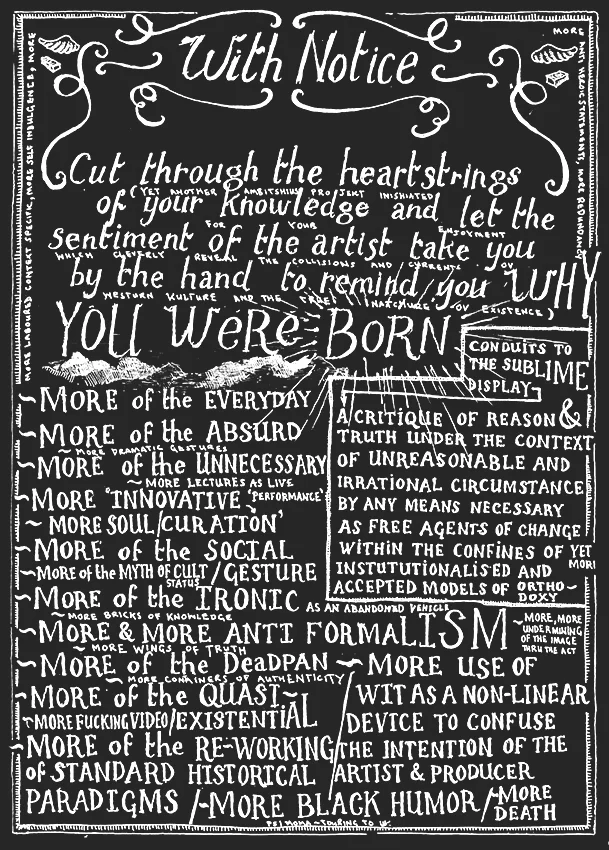 With Notice
MORE LABOURED CONTEXT SPECIFIC, MORE SELF INDULGENCE, MORE
MORE ANTI HEROIC STATEMENTS, MORE REDUNDANCY
Cut through the heartstrings
(YET ANOTHER AMBITSHIUS PROJSEKT INISHIATED
of your knowledge and let the
FOR YOUR ENJOYMENT
sentiment of the artist take you
WHICH CLEVERLY REVEAL THE COLLISIONS AND CURRENTS OV
by the hand to remind you WHY
WESTURN KULTURE AND THE TRUE NATCHURE OV EXISTENCE)
YOU WERE BORN
CONDUITS TO
THE SUBLIME
DISPLAY
~MORE of the EVERYDAY
~MORE of the ABSURD
~MORE DRAMATIC GESTURES
~MORE of the UNNECESSARY
~MORE LECTURES AS LIVE
~MORE 'INNOVATIVE 'PERFORMANCE'
~MORE SOUL/CURATION'
~MORE of the SOCIAL
~MORE of the MYTH OF CULT STATUS/GESTURE
~MORE of the IRONIC
A CRITIQUE OF REASON &
TRUTH UNDER THE CONTEXT
OF UNREASONABLE AND
IRRATIONAL CIRCUMSTANCE
BY ANY MEANS NECESSARY
AS FREE AGENTS OF CHANGE
WITHIN THE CONFINES OF YET MORE
INSTUTUTIONALISED AND
ACCEPTED MODELS OF ORTHO-
DOXY
AS AN ABANDONED VEHICLE
~MORE BRICKS OF KNOWLEDGE
~MORE & MORE ANTI FORMALISM
~MORE, MORE
UNDERMINING
OF THE IMAGE
THRU THE ACT
~MORE WINGS OF TRUTH
~MORE of the DeaDPAN
~MORE CONTAINERS OF AUTHENTICITY
~MORE of the QUASI~
~MORE FUCKING VIDEO/EXISTENTIAL
~MORE of the RE-WORKING
of STANDARD HISTORICAL
PARADIGMS /~MORE BLACK HUMOR/~MORE
DEATH
~MORE USE OF
WIT AS A NON-LINEAR
DEVICE TO CONFUSE
THE INTENTION OF THE
ARTIST & PRODUCER